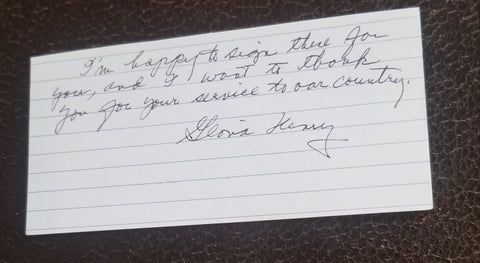 I'm happy to sign these for
you, and I want to thank
you for your service to our country.
Gloria Henry